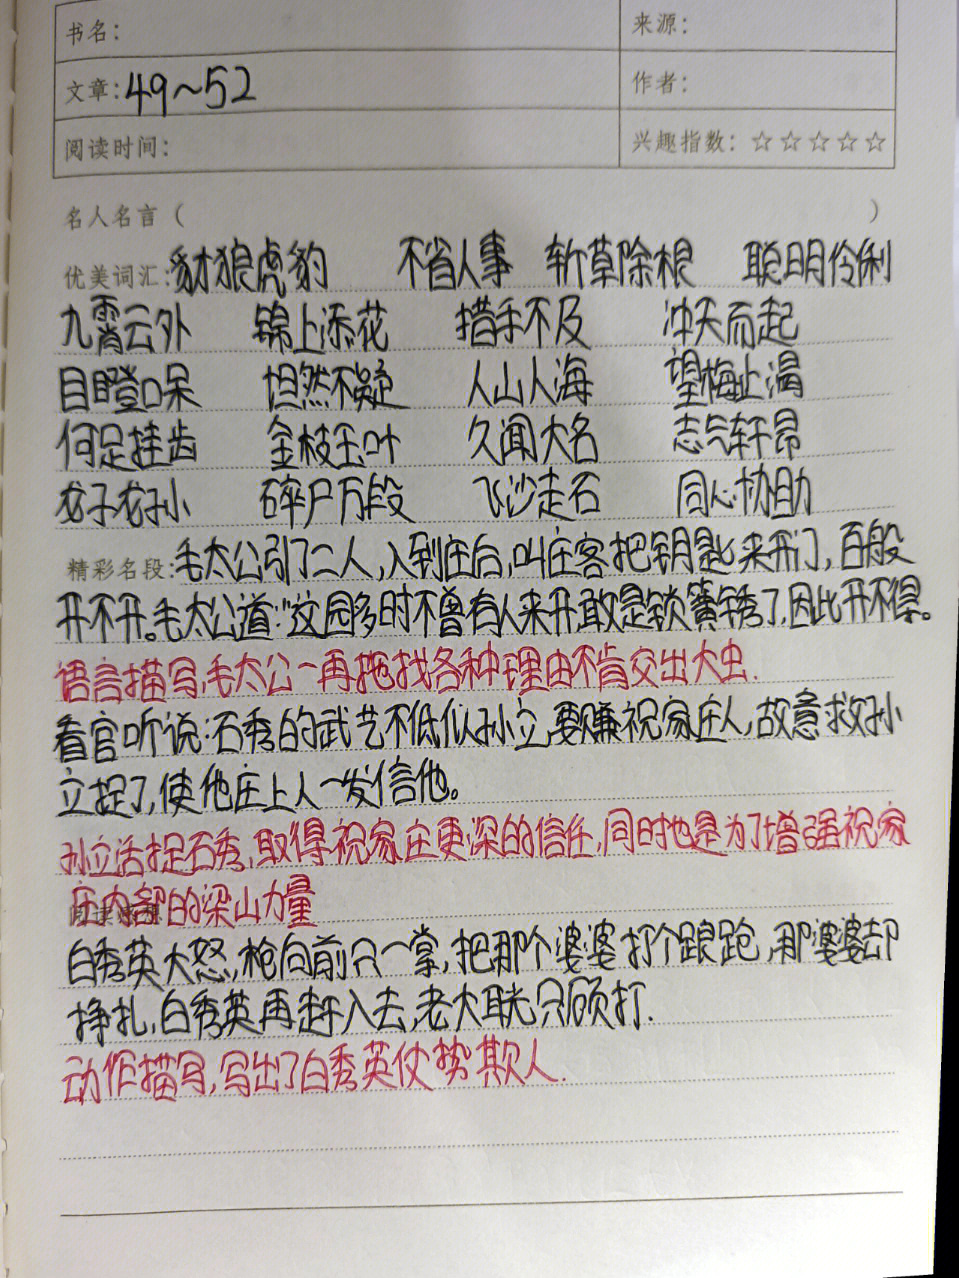 书名：
来源：
文章：49~52
作者：
阅读时间：
兴趣指数：☆☆☆☆☆
名人名言（ ）
优美词汇：豺狼虎豹 不省人事 斩草除根 聪明伶俐
九霄云外 锦上添花 措手不及 冲天而起
目瞪口呆 坦然不疑 人山人海 望梅止渴
何足挂齿 金枝玉叶 久闻大名 志气轩昂
龙子龙孙 碎尸万段 飞沙走石 同心协助
精彩名段：毛太公引了二人，入到庄后，叫庄客把钥匙来开门，百般
开不开。毛太公道："这园多时不曾有人来开，敢是锁簧锈了，因此开不得。
语言描写，毛太公一再拖找各种理由不肯交出大虫.
看官听说：石秀的武艺不低似孙立，要赚祝家庄人，故意救孙
立捉了，使他庄上人一发信他。
孙立活捉石秀，取得祝家庄更深的信任，同时也是为了增强祝家
庄内部的梁山力量
白秀英大怒，枪向前只一掌，把那个婆婆打个踉跄，那婆婆却
挣扎，白秀英再赶入去，老大耽只顾打.
动作描写，写出了白秀英仗势欺人.